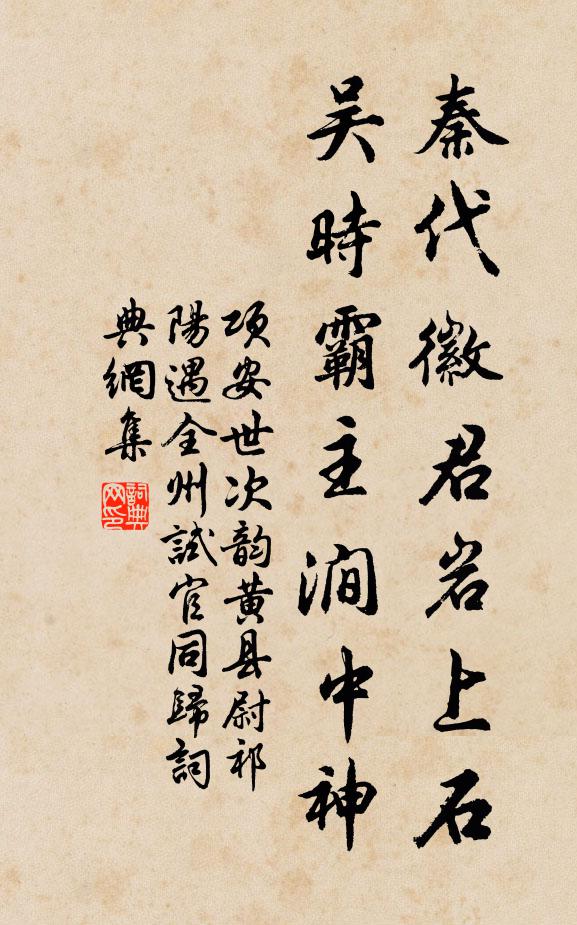 秦代徽君岩上石
吴時霸主澗中神
项安世次韵黄县尉祁
陽遇全州試官同歸詞
典網集
詞典
网印